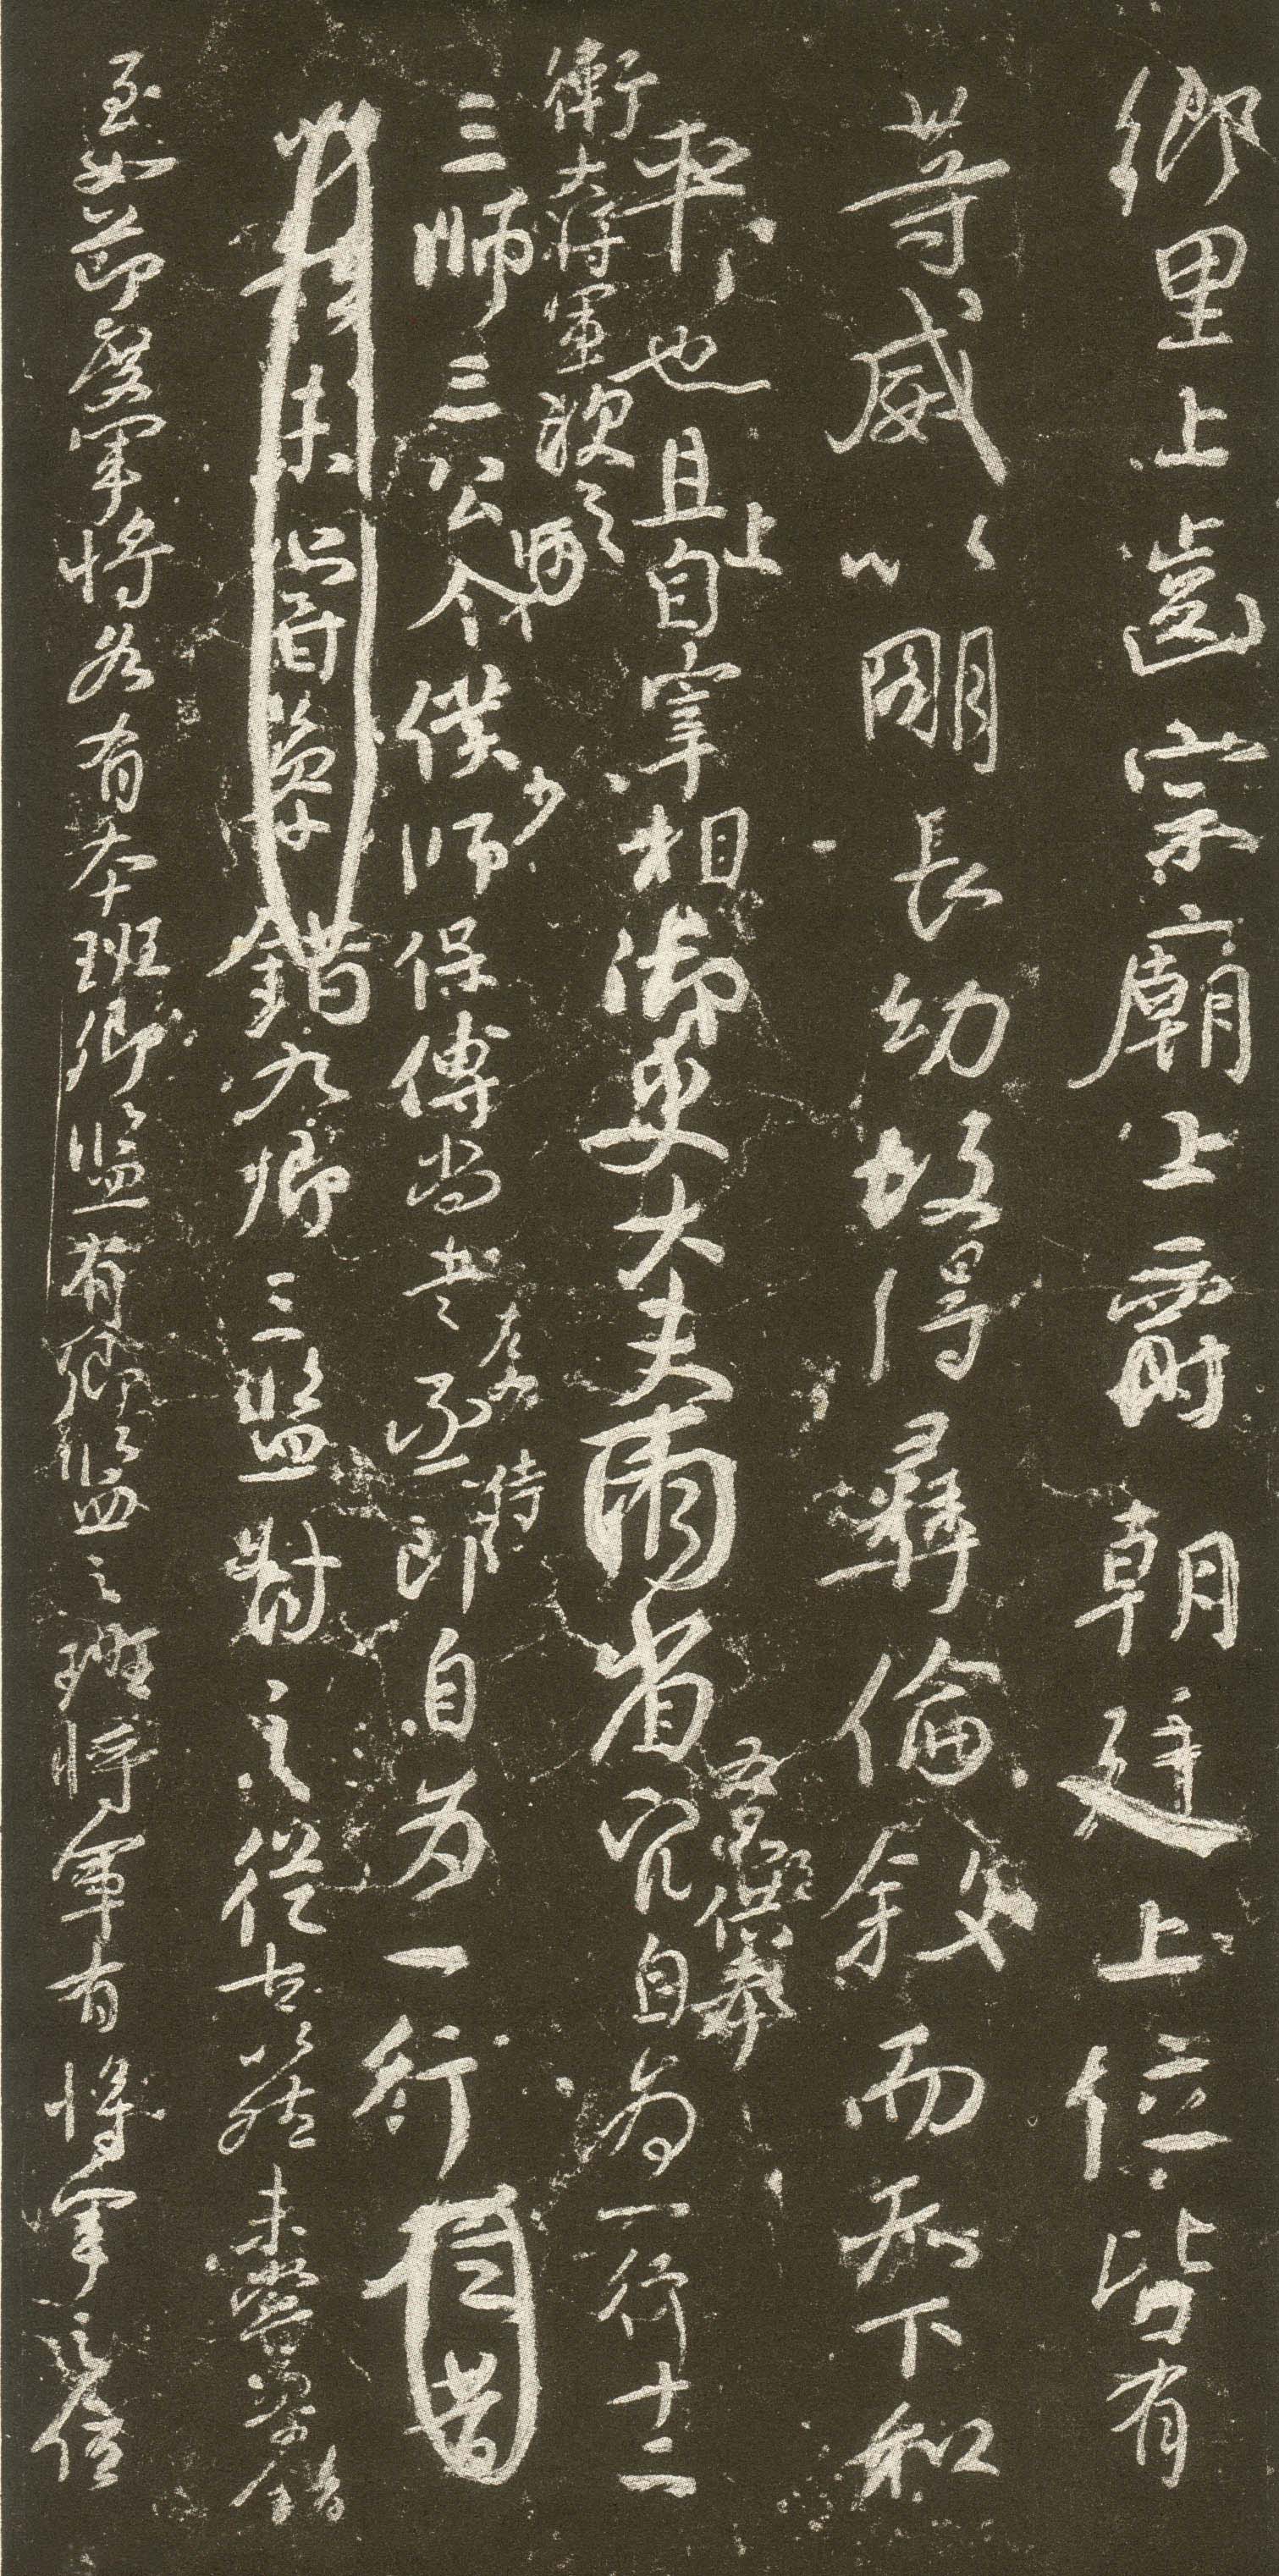 鄉里上齒宗廟上爵朝廷上位皆有
等威以明長幼故得彝倫敘而天下和
平也且上自宰相御史大夫兩省五品以上供奉官自為一行十二
衛大將軍次之
三師三公令僕少師保傅尚書左右丞侍郎自為一行
錯九卿三監對之從古以然未嘗參錯
至如節度軍將各有本班卿監有卿監之班將軍有將軍之位